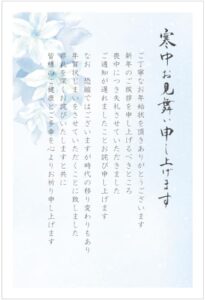 寒中お見舞い申し上げます
ご丁寧なお年始状を頂きありがとうございます
新年のご挨拶を申し上げるべきところ
喪中につき失礼させていただきました
ご通知が遅れましたことお詫び申し上げます
なお 恐縮ではございますが時代の移り変わりもあり
年賀状じまいをさせていただくことに致しました
非礼を深くお詫びいたしますと共に
皆様のご健康とご多幸を心よりお祈り申し上げます